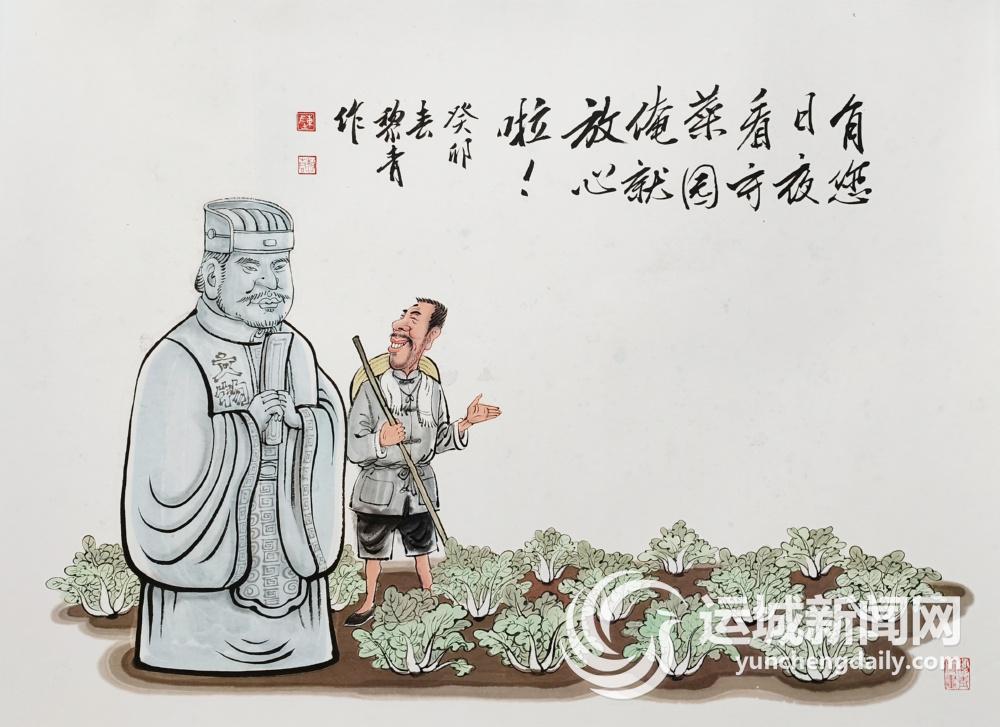 有您
日夜
看守
菜园
俺就
放心
啦！
癸卯
春
黎青
作
运城新闻网
yunchengdaily.com